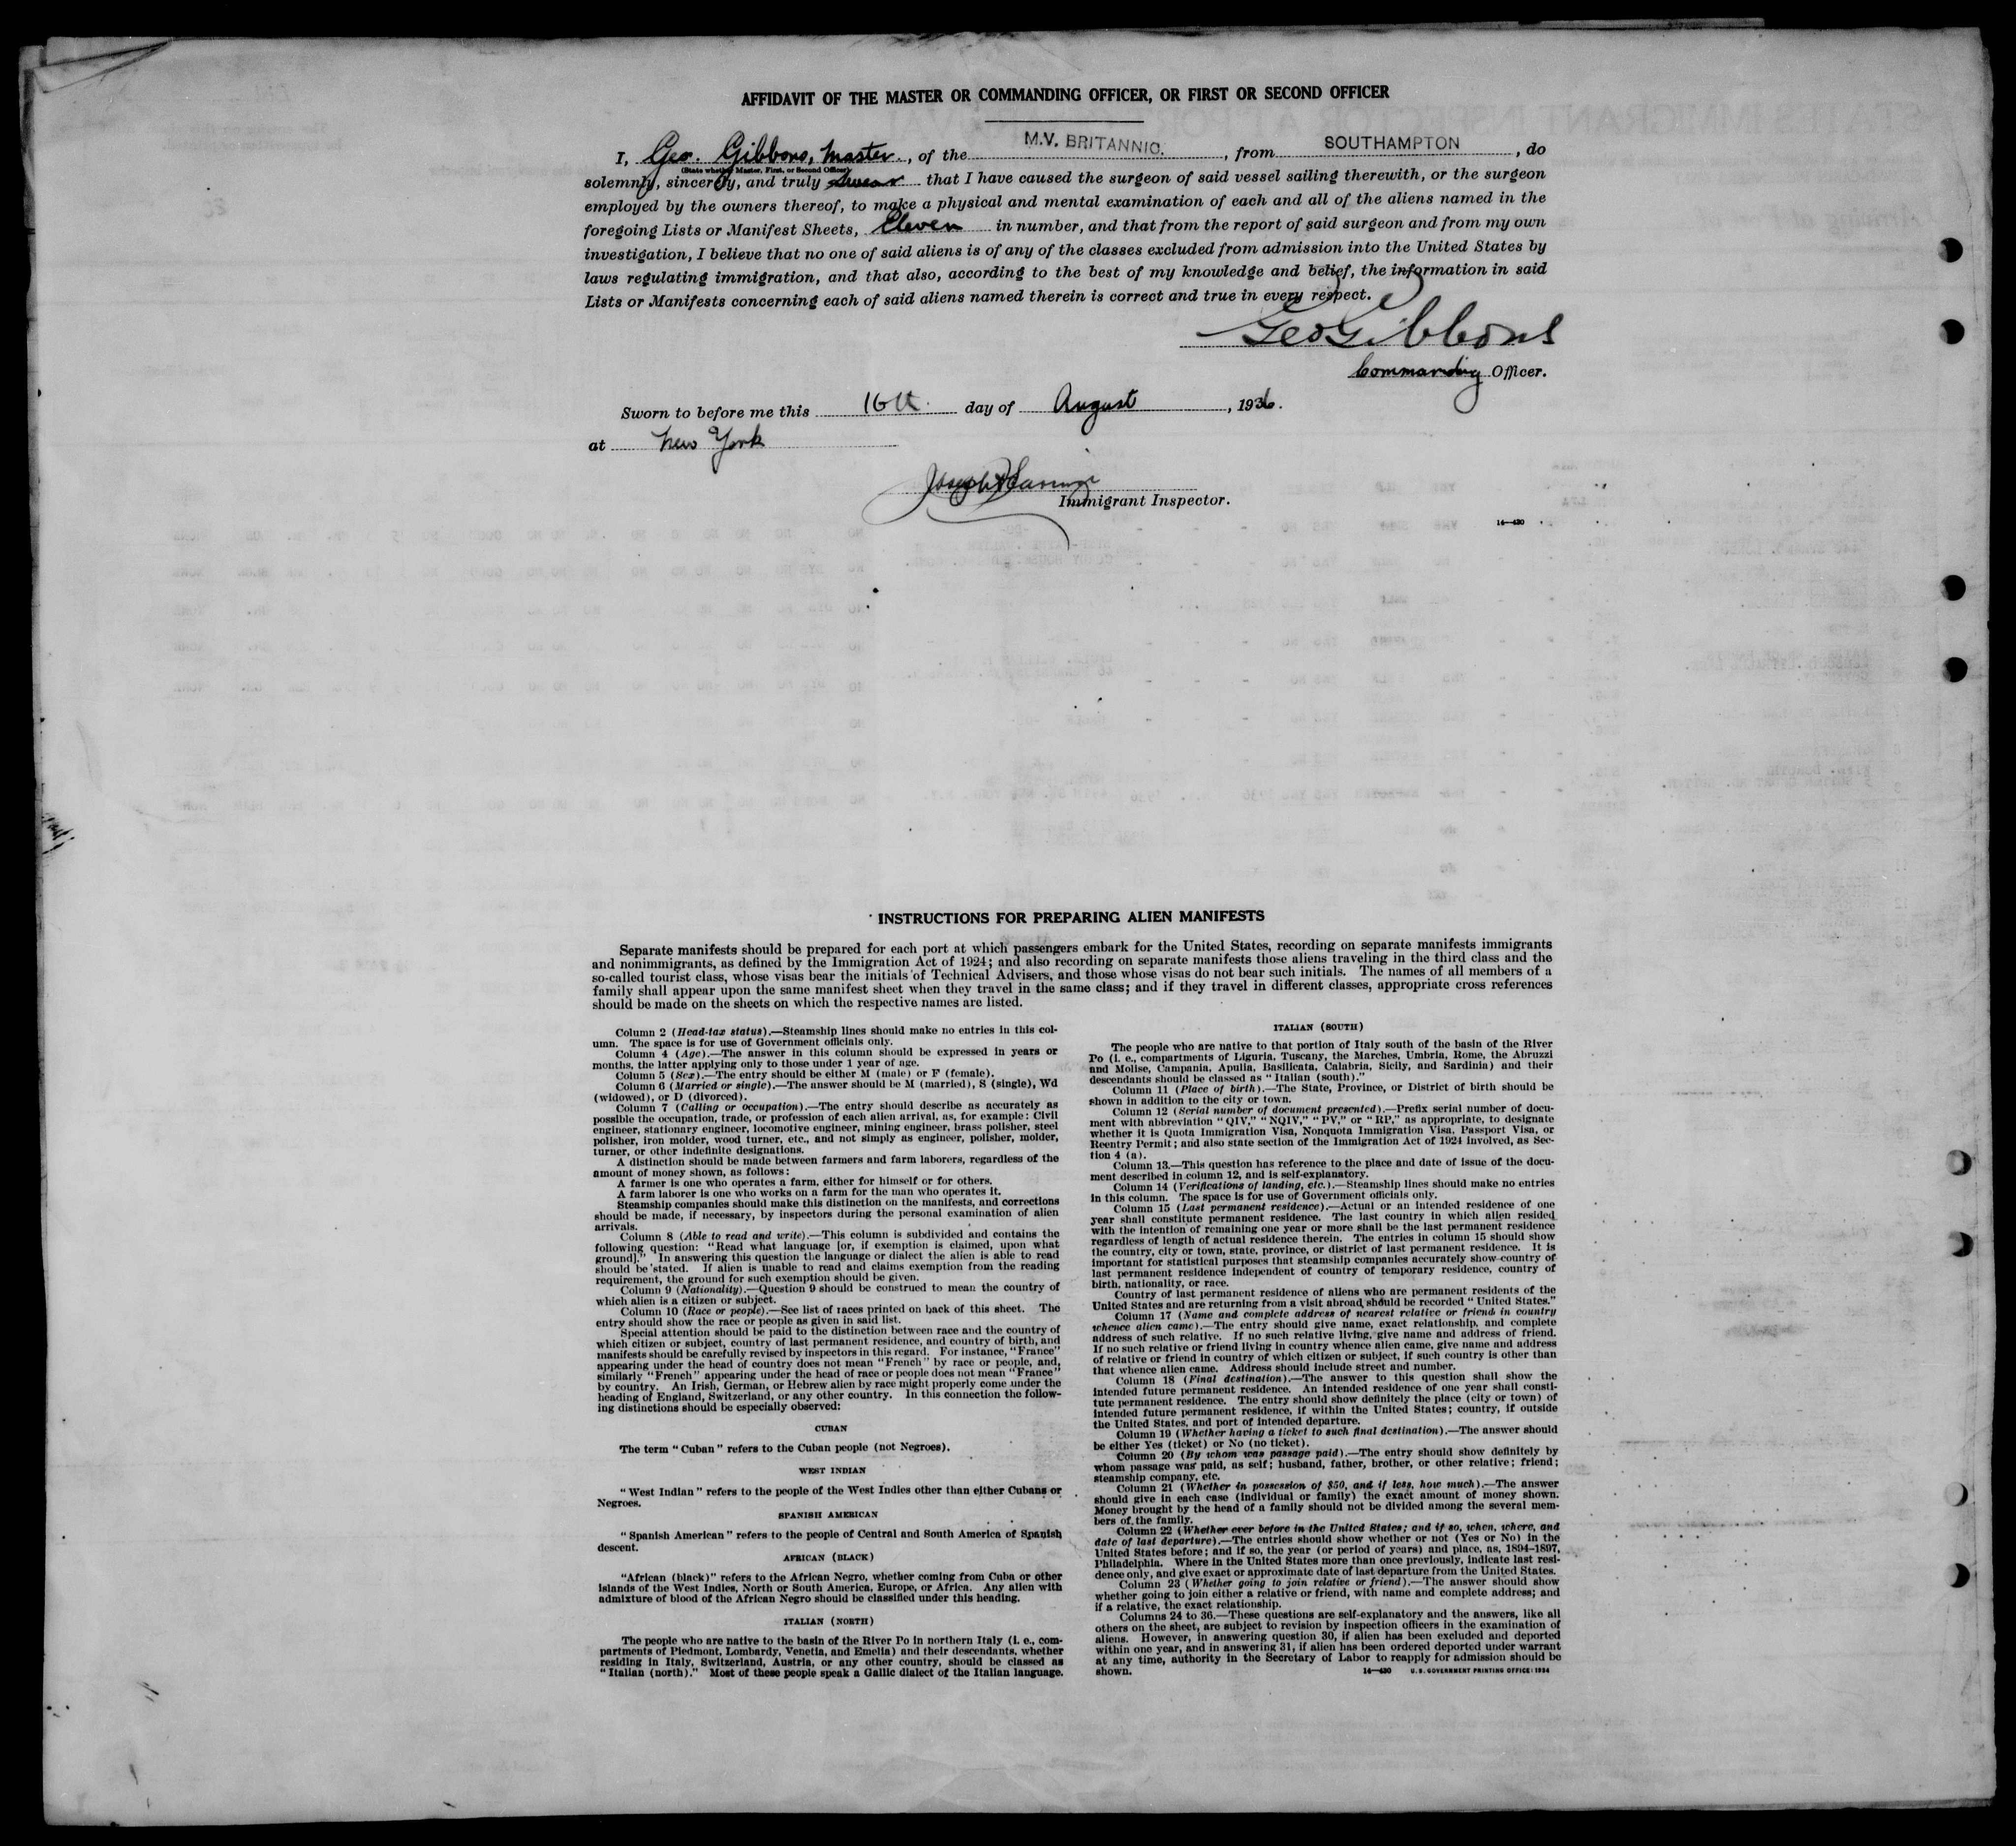 AFFIDAVIT OF THE MASTER OR COMMANDING OFFICER, OR FIRST OR SECOND OFFICER
I, Geo. Gibbons, Master, of the M.V. BRITANNIC., from SOUTHAMPTON, do
(State whether Master, First, or Second Officer)
solemnly, sincerely, and truly swear that I have caused the surgeon of said vessel sailing therewith, or the surgeon
employed by the owners thereof, to make a physical and mental examination of each and all of the aliens named in the
foregoing Lists or Manifest Sheets, Eleven in number, and that from the report of said surgeon and from my own
investigation, I believe that no one of said aliens is of any of the classes excluded from admission into the United States by
laws regulating immigration, and that also, according to the best of my knowledge and belief, the information in said
Lists or Manifests concerning each of said aliens named therein is correct and true in every respect.
Geo Gibbons
Commanding Officer.
Sworn to before me this 16th day of August, 1936.
at New York
Joseph
Immigrant Inspector.
14—430
INSTRUCTIONS FOR PREPARING ALIEN MANIFESTS
Separate manifests should be prepared for each port at which passengers embark for the United States, recording on separate manifests immigrants
and nonimmigrants, as defined by the Immigration Act of 1924; and also recording on separate manifests those aliens traveling in the third class and the
so-called tourist class, whose visas bear the initials of Technical Advisers, and those whose visas do not bear such initials. The names of all members of a
family shall appear upon the same manifest sheet when they travel in the same class; and if they travel in different classes, appropriate cross references
should be made on the sheets on which the respective names are listed.
Column 2 (Head-tax status).—Steamship lines should make no entries in this col-
umn. The space is for use of Government officials only.
Column 4 (Age).—The answer in this column should be expressed in years or
months, the latter applying only to those under 1 year of age.
Column 5 (Sex).—The entry should be either M (male) or F (female).
Column 6 (Married or single).—The answer should be M (married), S (single), Wd
(widowed), or D (divorced).
Column 7 (Calling or occupation).—The entry should describe as accurately as
possible the occupation, trade, or profession of each alien arrival, as, for example: Civil
engineer, stationary engineer, locomotive engineer, mining engineer, brass polisher, steel
polisher, iron molder, wood turner, etc., and not simply as engineer, polisher, molder,
turner, or other indefinite designations.
A distinction should be made between farmers and farm laborers, regardless of the
amount of money shown, as follows:
A farmer is one who operates a farm, either for himself or for others.
A farm laborer is one who works on a farm for the man who operates it.
Steamship companies should make this distinction on the manifests, and corrections
should be made, if necessary, by inspectors during the personal examination of alien
arrivals.
Column 8 (Able to read and write).—This column is subdivided and contains the
following question: "Read what language [or, if exemption is claimed, upon what
ground]." In answering this question the language or dialect the alien is able to read
should be stated. If alien is unable to read and claims exemption from the reading
requirement, the ground for such exemption should be given.
Column 9 (Nationality).—Question 9 should be construed to mean the country of
which alien is a citizen or subject.
Column 10 (Race or people).—See list of races printed on back of this sheet. The
entry should show the race or people as given in said list.
Special attention should be paid to the distinction between race and the country of
which citizen or subject, country of last permanent residence, and country of birth, and
manifests should be carefully revised by inspectors in this regard. For instance, "France"
appearing under the head of country does not mean "French" by race or people, and,
similarly "French" appearing under the head of race or people does not mean "France"
by country. An Irish, German, or Hebrew alien by race might properly come under the
heading of England, Switzerland, or any other country. In this connection the follow-
ing distinctions should be especially observed:
CUBAN
The term "Cuban" refers to the Cuban people (not Negroes).
WEST INDIAN
"West Indian" refers to the people of the West Indies other than either Cubans or
Negroes.
SPANISH AMERICAN
"Spanish American" refers to the people of Central and South America of Spanish
descent.
AFRICAN (BLACK)
"African (black)" refers to the African Negro, whether coming from Cuba or other
islands of the West Indies, North or South America, Europe, or Africa. Any alien with
admixture of blood of the African Negro should be classified under this heading.
ITALIAN (NORTH)
The people who are native to the basin of the River Po in northern Italy (i. e., com-
partments of Piedmont, Lombardy, Venetia, and Emelia) and their descendants, whether
residing in Italy, Switzerland, Austria, or any other country, should be classed as
"Italian (north)." Most of these people speak a Gallic dialect of the Italian language.
ITALIAN (SOUTH)
The people who are native to that portion of Italy south of the basin of the River
Po (i. e., compartments of Liguria, Tuscany, the Marches, Umbria, Rome, the Abruzzi
and Molise, Campania, Apulia, Basilicata, Calabria, Sicily, and Sardinia) and their
descendants should be classed as "Italian (south)."
Column 11 (Place of birth).—The State, Province, or District of birth should be
shown in addition to the city or town.
Column 12 (Serial number of document presented).—Prefix serial number of docu-
ment with abbreviation "QIV," "NQIV," "PV," or "RP," as appropriate, to designate
whether it is Quota Immigration Visa, Nonquota Immigration Visa, Passport Visa, or
Reentry Permit; and also state section of the Immigration Act of 1924 involved, as Sec-
tion 4 (a).
Column 13.—This question has reference to the place and date of issue of the docu-
ment described in column 12, and is self-explanatory.
Column 14 (Verifications of landing, etc.).—Steamship lines should make no entries
in this column. The space is for use of Government officials only.
Column 15 (Last permanent residence).—Actual or an intended residence of one
year shall constitute permanent residence. The last country in which alien resided
with the intention of remaining one year or more shall be the last permanent residence
regardless of length of actual residence therein. The entries in column 15 should show
the country, city or town, state, province, or district of last permanent residence. It is
important for statistical purposes that steamship companies accurately show country of
last permanent residence independent of country of temporary residence, country of
birth, nationality, or race.
Country of last permanent residence of aliens who are permanent residents of the
United States and are returning from a visit abroad, should be recorded "United States."
Column 17 (Name and complete address of nearest relative or friend in country
whence alien came).—The entry should give name, exact relationship, and complete
address of such relative. If no such relative living, give name and address of friend.
If no such relative or friend living in country whence alien came, give name and address
of relative or friend in country of which citizen or subject, if such country is other than
that whence alien came. Address should include street and number.
Column 18 (Final destination).—The answer to this question shall show the
intended future permanent residence. An intended residence of one year shall consti-
tute permanent residence. The entry should show definitely the place (city or town) of
intended future permanent residence, if within the United States; country, if outside
the United States, and port of intended departure.
Column 19 (Whether having a ticket to such final destination).—The answer should
be either Yes (ticket) or No (no ticket).
Column 20 (By whom was passage paid).—The entry should show definitely by
whom passage was paid, as self; husband, father, brother, or other relative; friend;
steamship company, etc.
Column 21 (Whether in possession of $50, and if less, how much).—The answer
should give in each case (individual or family) the exact amount of money shown.
Money brought by the head of a family should not be divided among the several mem-
bers of the family.
Column 22 (Whether ever before in the United States; and if so, when, where, and
date of last departure).—The entries should show whether or not (Yes or No) in the
United States before; and if so, the year (or period of years) and place, as, 1894-1897,
Philadelphia. Where in the United States more than once previously, indicate last resi-
dence only, and give exact or approximate date of last departure from the United States.
Column 23 (Whether going to join relative or friend).—The answer should show
whether going to join either a relative or friend, with name and complete address; and
if a relative, the exact relationship.
Columns 24 to 36.—These questions are self-explanatory and the answers, like all
others on the sheet, are subject to revision by inspection officers in the examination of
aliens. However, in answering question 30, if alien has been excluded and deported
within one year, and in answering 31, if alien has been ordered deported under warrant
at any time, authority in the Secretary of Labor to reapply for admission should be
shown.
14—430 U. S. GOVERNMENT PRINTING OFFICE: 1934